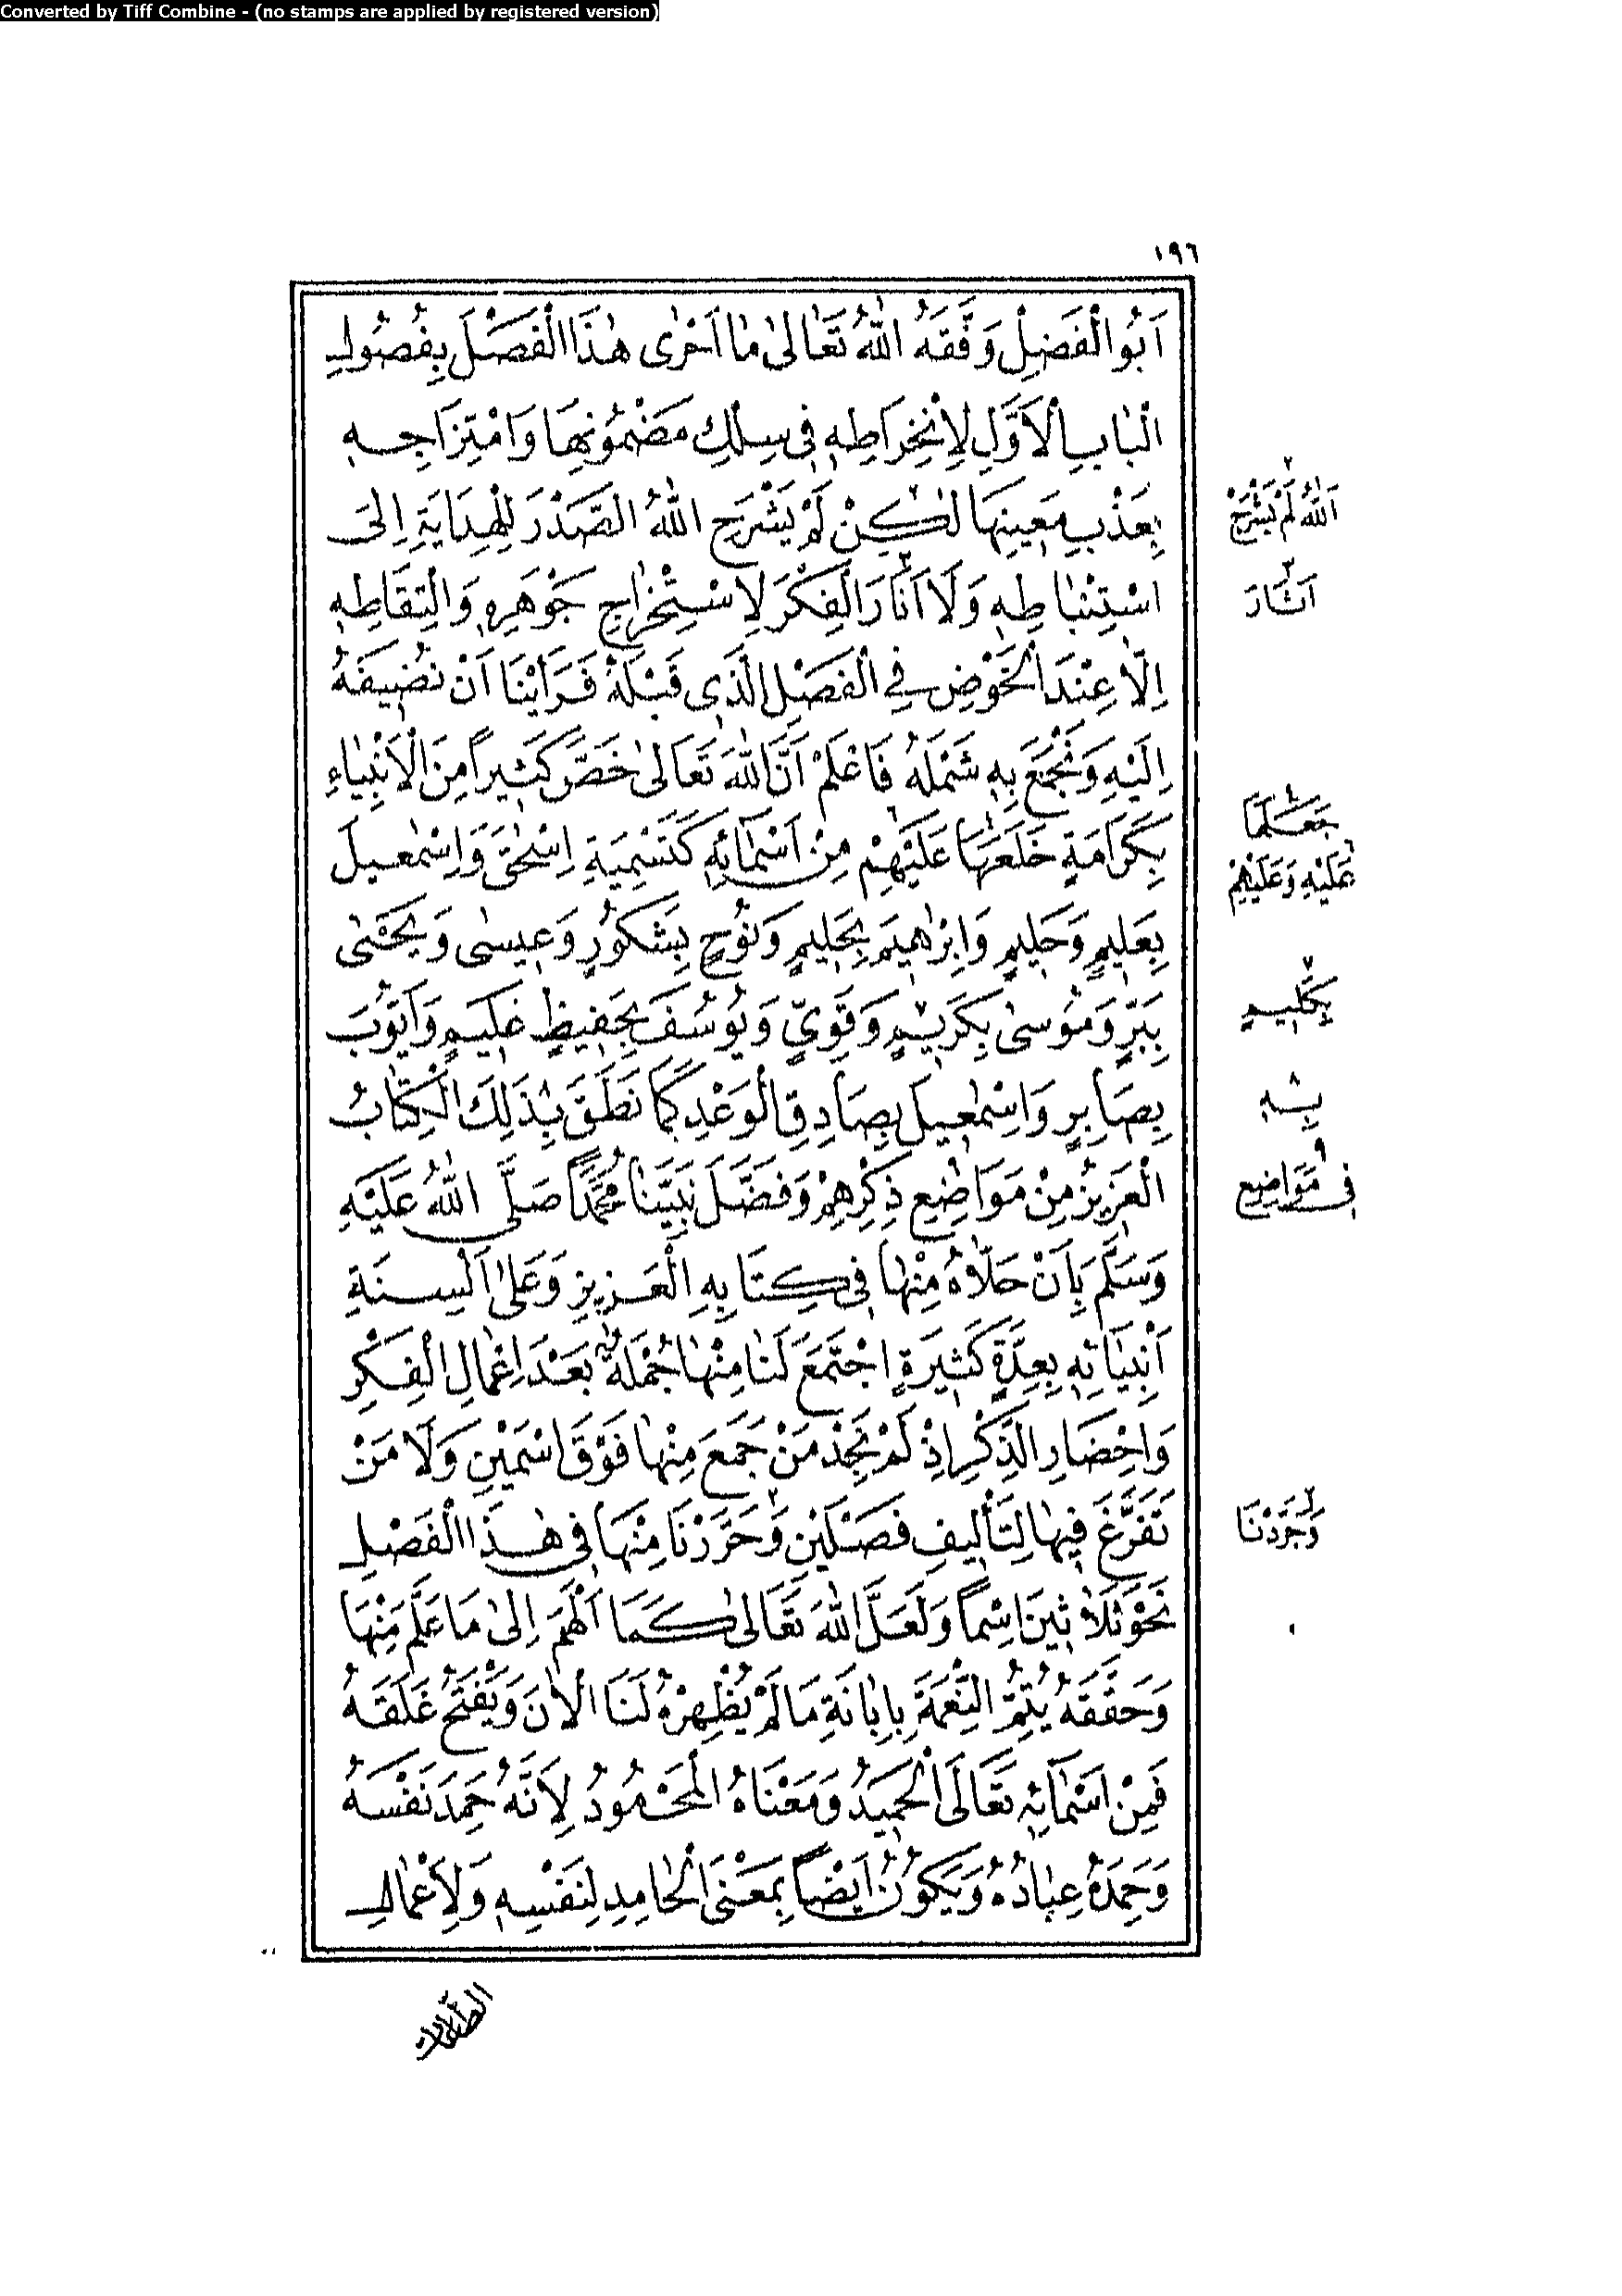 Converted by Tiff Combine - (no stamps are applied by registered version)
١٩٦
اَبُو الْفَضْلِ وَفَّقَهُ اللهُ تَعَالىٰ مٰا اَحْرٰى هٰذَا الْفَصْلَ بِفُصُولِ
الْبٰابِ الْاَوَّلِ لِاِنْخِرَاطِهِ فِى سِلْكِ مَضْمُونِهَا وَامْتِزَاجِهِ
بِعَذْبِ مَعِينِهَا لٰكِنْ لَمْ يَشْرَحِ اللهُ الصَّدْرَ لِلْهِدَايَةِ اِلىَ
اسْتِنْبٰاطِهِ وَلَا اَنٰارَ الْفِكْرَ لِاسْتِخْرٰاجِ جَوْهَرِهِ وَالْتِقَاطِهِ
اِلّاَ عِنْدَ الْخَوْضِ فِى الْفَصْلِ الَّذِى قَبْلَهُ فَرَاَيْنَا اَنْ نُضِيفَهُ
اِلَيْهِ وَنَجْمَعَ بِهِ شَمْلَهُ فَاعْلَمْ اَنَّ اللهَ تَعَالىٰ خَصَّ كَثِيراً مِنَ الْاَنْبِيٰاءِ
بِكَرَامَةٍ خَلَعَهَا عَلَيْهِمْ مِنْ اَسْمٰائِهِ كَتَسْمِيَةِ اِسْحٰقَ وَاِسْمٰعيلَ
بِعَلِيمٍ وَحَلِيمٍ وَاِبْرٰهِيمَ بِحَلِيمٍ وَنُوحٍ بِشَكُورٍ وَعِيسٰى وَيَحْيٰى
بِبَرٍّ وَمُوسىٰ بِكَرِيمٍ وَقَوِيٍّ وَيُوسُفَ بِحَفِيظٍ عَلِيمٍ وَاَيُّوبَ
بِصَابِرٍ وَاِسْمٰعِيلَ بِصَادِقِ الْوَعْدِ كَمٰا نَطَقَ بِذٰلِكَ الْكِتٰابُ
الْعَزِيزُ مِنْ مَوَاضِعِ ذِكْرِهِمْ وَفَضَّلَ نَبِيَّنٰا مُحَمَّداً صَلَّى اللهُ عَلَيْهِ
وَسَلَّمَ بِاَنْ حَلّاَهُ مِنْهٰا فِى كِتَابِهِ الْعَزِيزِ وَعَلىٰ اَلْسِنَةِ
اَنْبِيَائِهِ بِعِدَّةٍ كَثِيرَةٍ اجْتَمَعَ لَنٰا مِنْهٰا جُمْلَةٌ بَعْدَ اِعْمٰالِ الْفِكْرِ
وَاِحْضَارِ الذِّكْرِ اِذْ لَمْ نَجِدْ مَنْ جَمَعَ مِنْهٰا فَوْقَ اسْمَيْنِ وَلَا مَنْ
تَفَرَّغَ فِيهٰا لِتَأْلِيفِ فَصْلَيْنِ وَحَرَّرْنَا مِنْهَا فِى هٰذَا الْفَصْلِ
نَحْوَ ثَلاٰثِينَ اسْماً وَلَعَلَّ اللهَ تَعَالىٰ كَمَا اَلْهَمَ اِلىٰ مَا عَلَّمَ مِنْهَا
وَحَقَّقَهُ يُتِمُّ النِّعْمَةَ بِاِبٰانَةِ مَا لَمْ يُظْهِرْهُ لَنَا الْاٰنَ وَيَفْتَحُ غَلَقَهُ
فَمِنْ اَسْمَائِهِ تَعَالَى الْحَمِيدُ وَمَعْنَاهُ الْمَحْمُودُ لِاَنَّهُ حَمِدَ نَفْسَهُ
وَحَمِدَهُ عِبٰادُهُ وَيَكُونُ اَيْضاً بِمَعْنَى الْحٰامِدِ لِنَفْسِهِ وَلِاَعْمٰالِ
اَللهُ لَمْ يَشْرَحْ
اَثَارَ
جَعَلَهَا
عَلَيْهِ وَعَلَيْهِمْ
بِكَلِيمٍ
بِهِ
فِى مَوَاضِعِ
وَجَرَّدْنَا